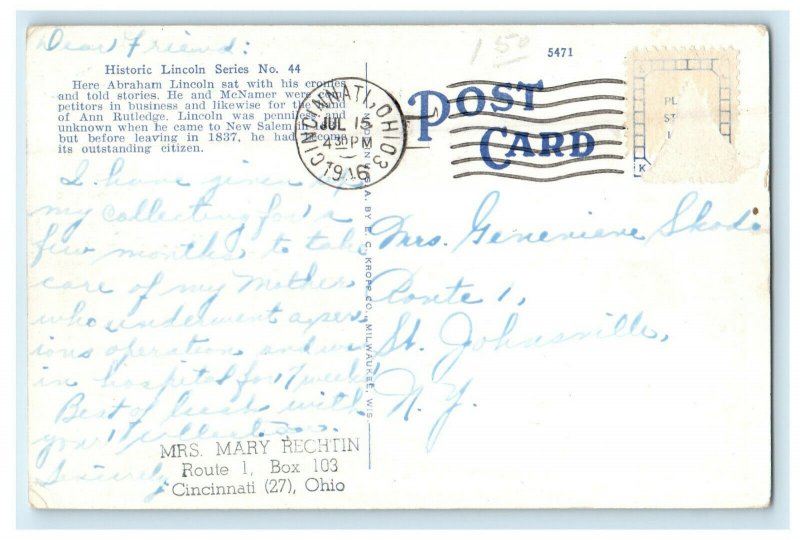 Dear Friend:
Historic Lincoln Series No. 44
Here Abraham Lincoln sat with his cronies
and told stories. He and McNamer were com-
petitors in business and likewise for the hand
of Ann Rutledge. Lincoln was penniless and
unknown when he came to New Salem in
but before leaving in 1837, he had become
its outstanding citizen.
I have given up
my collecting for a
few months to take
care of my Mother
who underwent a ser-
ious operation and was
in hospital for 7 weeks
Best of luck with
your collection.
Sincerely
MRS. MARY RECHTIN
Route 1, Box 103
Cincinnati (27), Ohio
BY E. C. KROPP CO., MILWAUKEE, WIS.
1 50
5471
POST
CARD
CINCINNATI, OHIO 3
JUL 15
4 30 PM
PL
ST
K
Mrs. Genevieve
Route 1,
St. Johnsville,
N.Y.